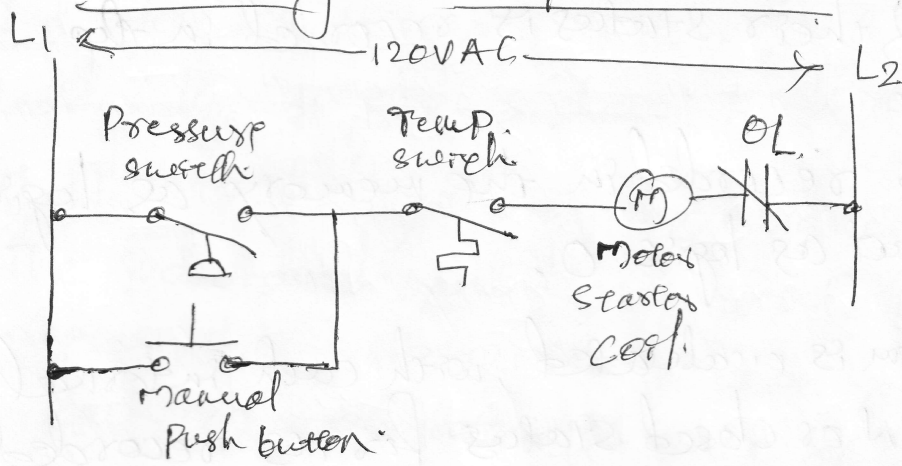 L1
120VAC
L2
Pressure
switch
Temp.
switch
OL
M
Motor
Starter
Coil.
Manual
Push button.